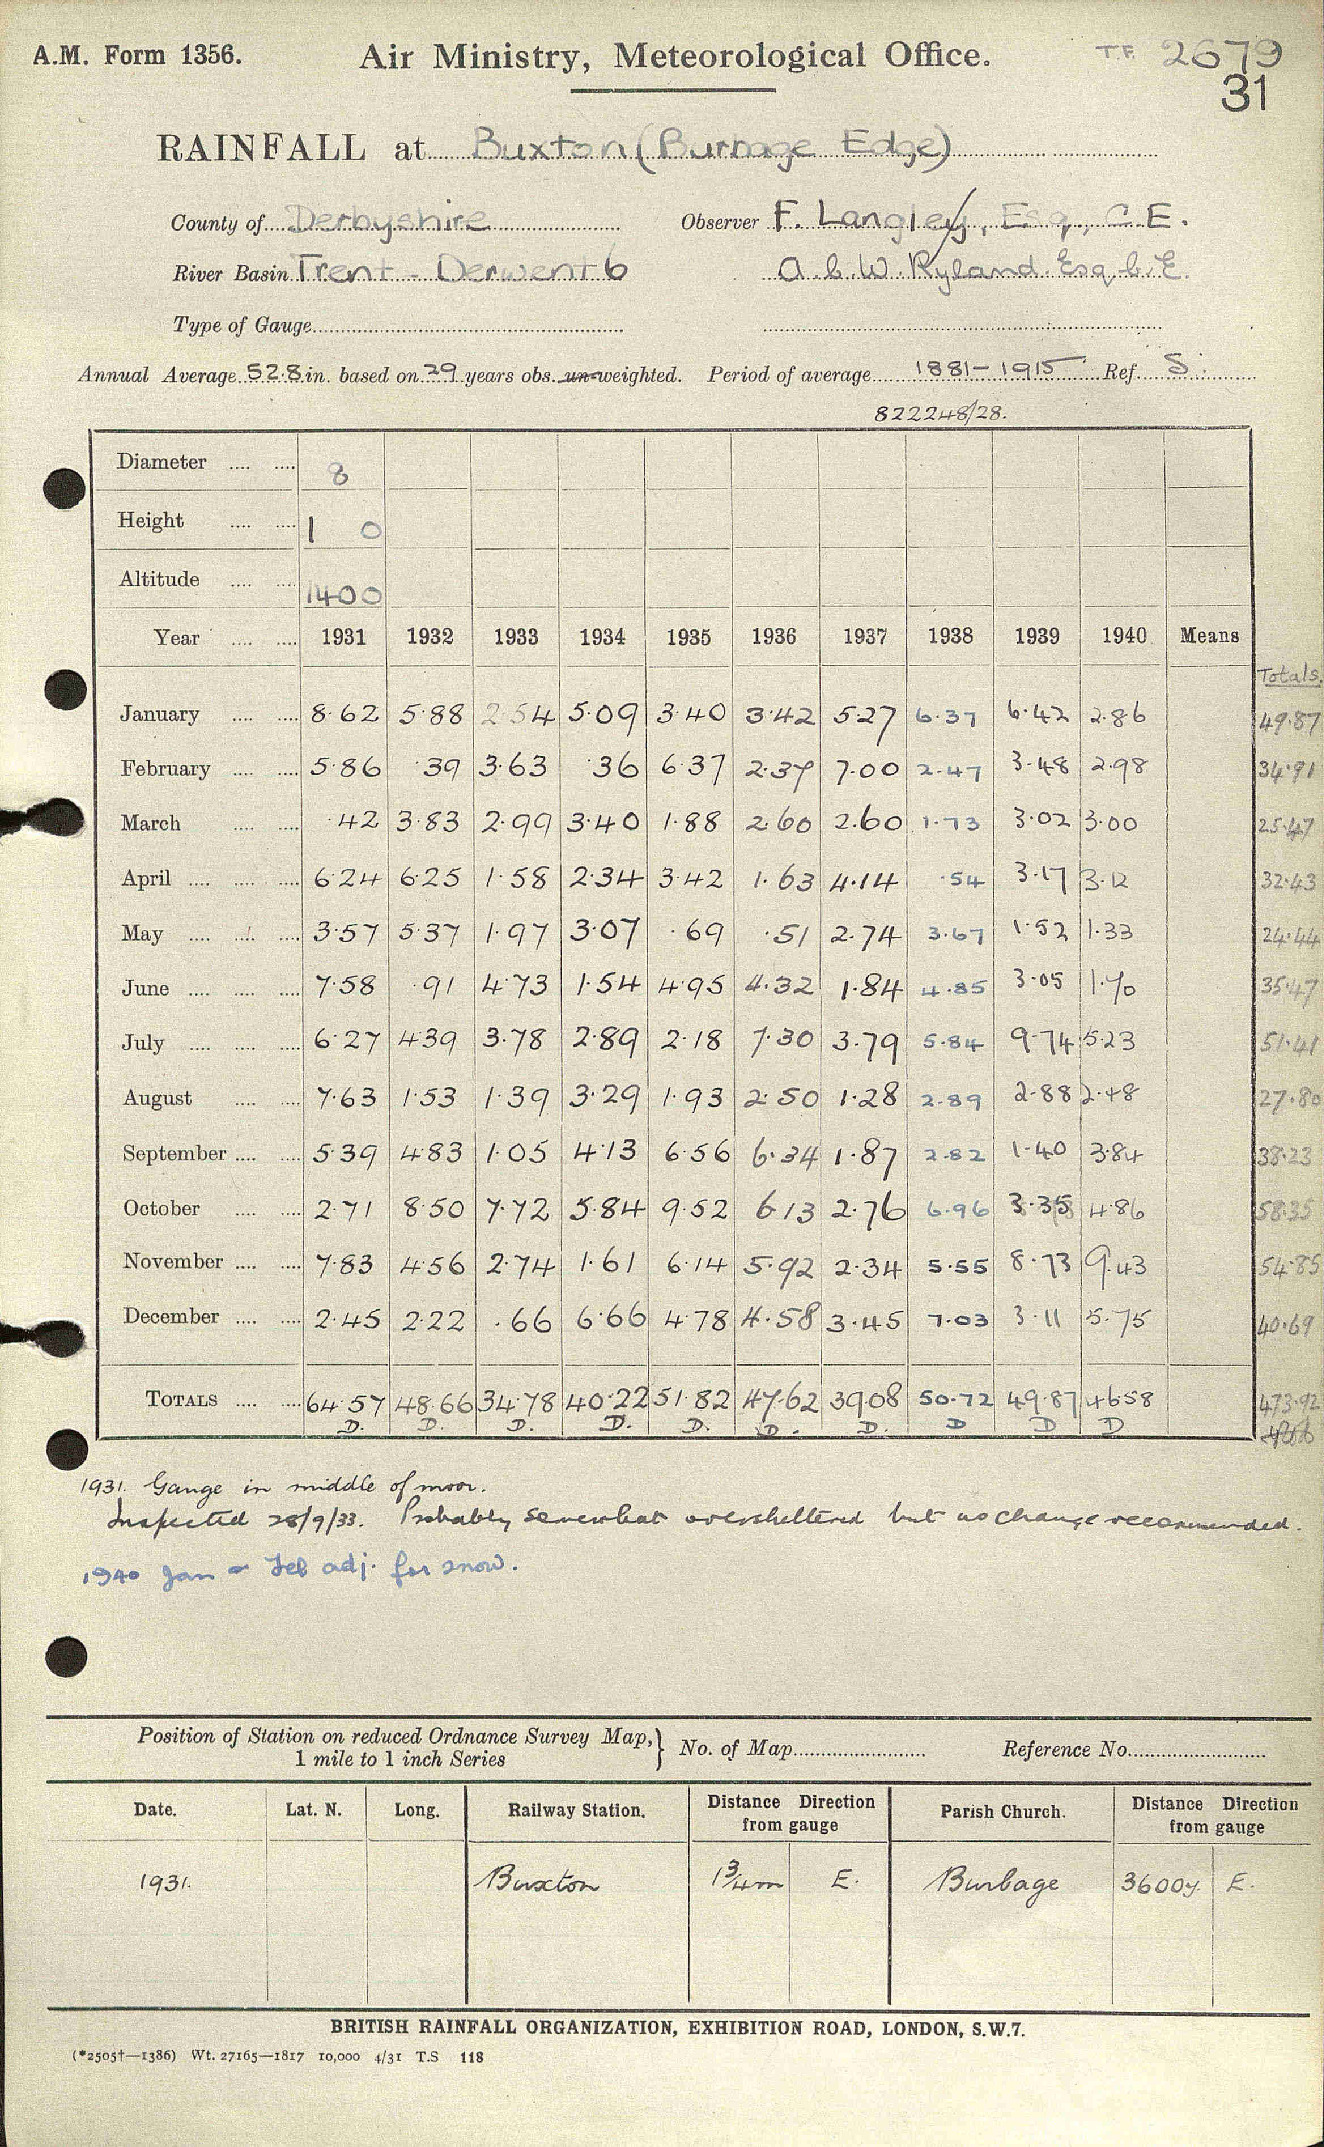 A.M. Form 1356. Air Ministry, Meteorological Office. T.F. 2679
31
RAINFALL at Buxton (Burbage Edge)
County of Derbyshire Observer F. Langley, Esq., C.E.
River Basin Trent - Derwent 6 A. C. W. Ryland Esq C.E.
Type of Gauge
Annual Average 52.8 in. based on 29 years obs. un-weighted. Period of average 1881-1915 Ref. S.
822248/28.
Diameter 8
Height 1 0
Altitude 1400
Year 1931 1932 1933 1934 1935 1936 1937 1938 1939 1940 Means
Totals.
January 8.62 5.88 2.54 5.09 3.40 3.42 5.27 6.37 6.42 2.86 49.87
February 5.86 .39 3.63 .36 6.37 2.37 7.00 2.47 3.48 2.98 34.91
March .42 3.83 2.99 3.40 1.88 2.60 2.60 1.73 3.02 3.00 25.47
April 6.24 6.25 1.58 2.34 3.42 1.63 4.14 .54 3.17 3.12 32.43
May 3.57 5.37 1.97 3.07 .69 .51 2.74 3.67 1.52 1.33 24.44
June 7.58 .91 4.73 1.54 4.95 4.32 1.84 4.85 3.05 1.70 35.47
July 6.27 4.39 3.78 2.89 2.18 7.30 3.79 5.84 9.74 5.23 51.41
August 7.63 1.53 1.39 3.29 1.93 2.50 1.28 2.89 2.88 2.48 27.80
September 5.39 4.83 1.05 4.13 6.56 6.34 1.87 2.82 1.40 3.84 38.23
October 2.71 8.50 7.72 5.84 9.52 6.13 2.76 6.96 3.35 4.86 58.35
November 7.83 4.56 2.74 1.61 6.14 5.92 2.34 5.55 8.73 9.43 54.85
December 2.45 2.22 .66 6.66 4.78 4.58 3.45 7.03 3.11 5.75 40.69
TOTALS 64.57 48.66 34.78 40.22 51.82 47.62 39.08 50.72 49.87 46.58 473.92
D. D. D. D. D. D. D. D D D
1931. Gauge in middle of moor.
Inspected 28/9/33. Probably somewhat oversheltered but no change recommended.
1940 Jan & Feb adj. for snow.
Position of Station on reduced Ordnance Survey Map,} No. of Map Reference No.
1 mile to 1 inch Series
Date. Lat. N. Long. Railway Station. Distance Direction from gauge Parish Church. Distance Direction from gauge
1931. Buxton 1¾m E. Burbage 3600y. E.
BRITISH RAINFALL ORGANIZATION, EXHIBITION ROAD, LONDON, S.W.7.
(*2505†—1386) Wt. 27165—1817 10,000 4/31 T.S 118